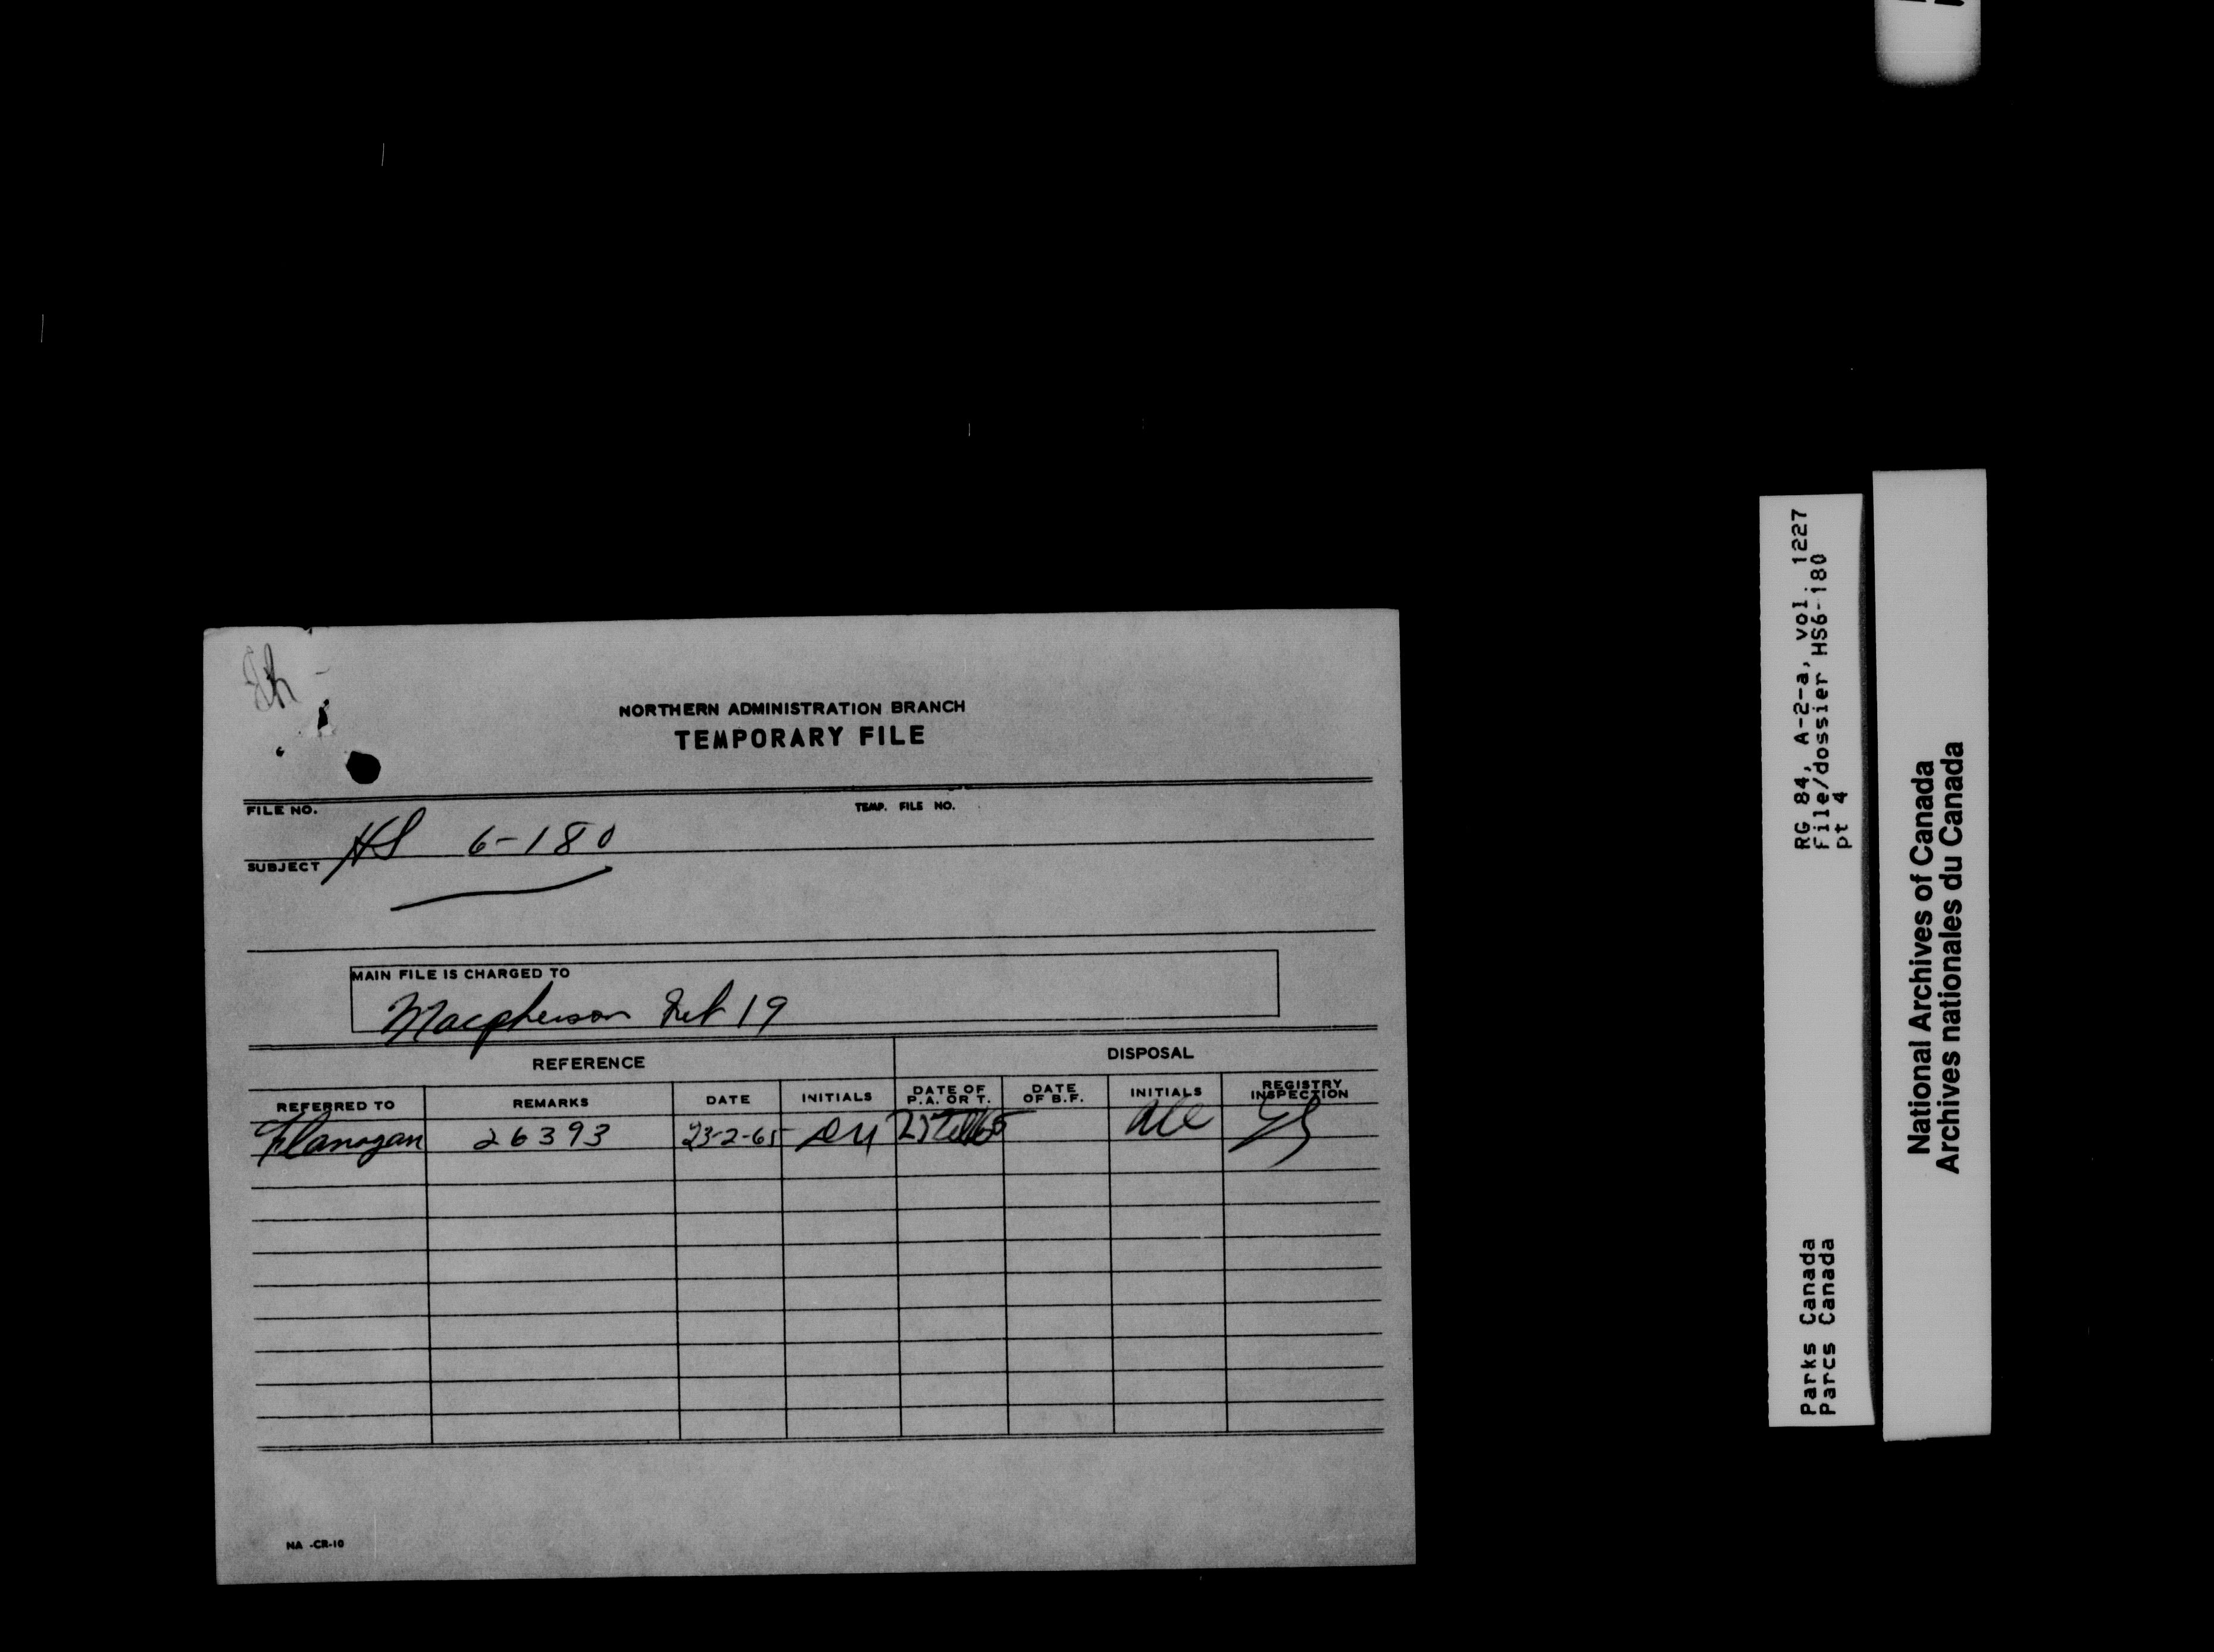 NORTHERN ADMINISTRATION BRANCH
TEMPORARY FILE
FILE NO. HS 6-180
TEMP. FILE NO.
SUBJECT
MAIN FILE IS CHARGED TO
Macpherson Feb 19
REFERENCE DISPOSAL
REFERRED TO REMARKS DATE INITIALS DATE OF P.A. OR T. DATE OF B.F. INITIALS REGISTRY INSPECTION
Flanagan 26393 23-2-65
NA -CR-10
RG 84, A-2-a, vol. 1227
File/dossier HS6-180
pt 4
Parks Canada
Parcs Canada
National Archives of Canada
Archives nationales du Canada